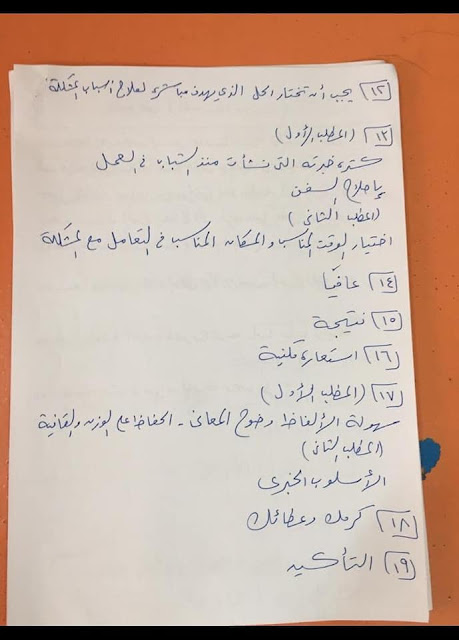 ١٢ يجب أن تختار الحل الذي يهدف مباشرة لعلاج أسباب المشكلة.
١٣ (المطلب الأول)
كثرة خبرته التى نشأت منذ الشباب فى العمل
بإصلاح السفن
(المطلب الثانى)
اختيار الوقت المناسب والمكان المناسب فى التعامل مع المشكلة
١٤ عافيًا
١٥ نتيجة
١٦ استعارة مكنية
١٧ (المطلب الأول)
سهولة الألفاظ وضوح المعانى - الحفاظ على الوزن والقافية
(المطلب الثانى)
الأسلوب الخبرى
١٨ كرمك وعطائك
١٩ التأكيد